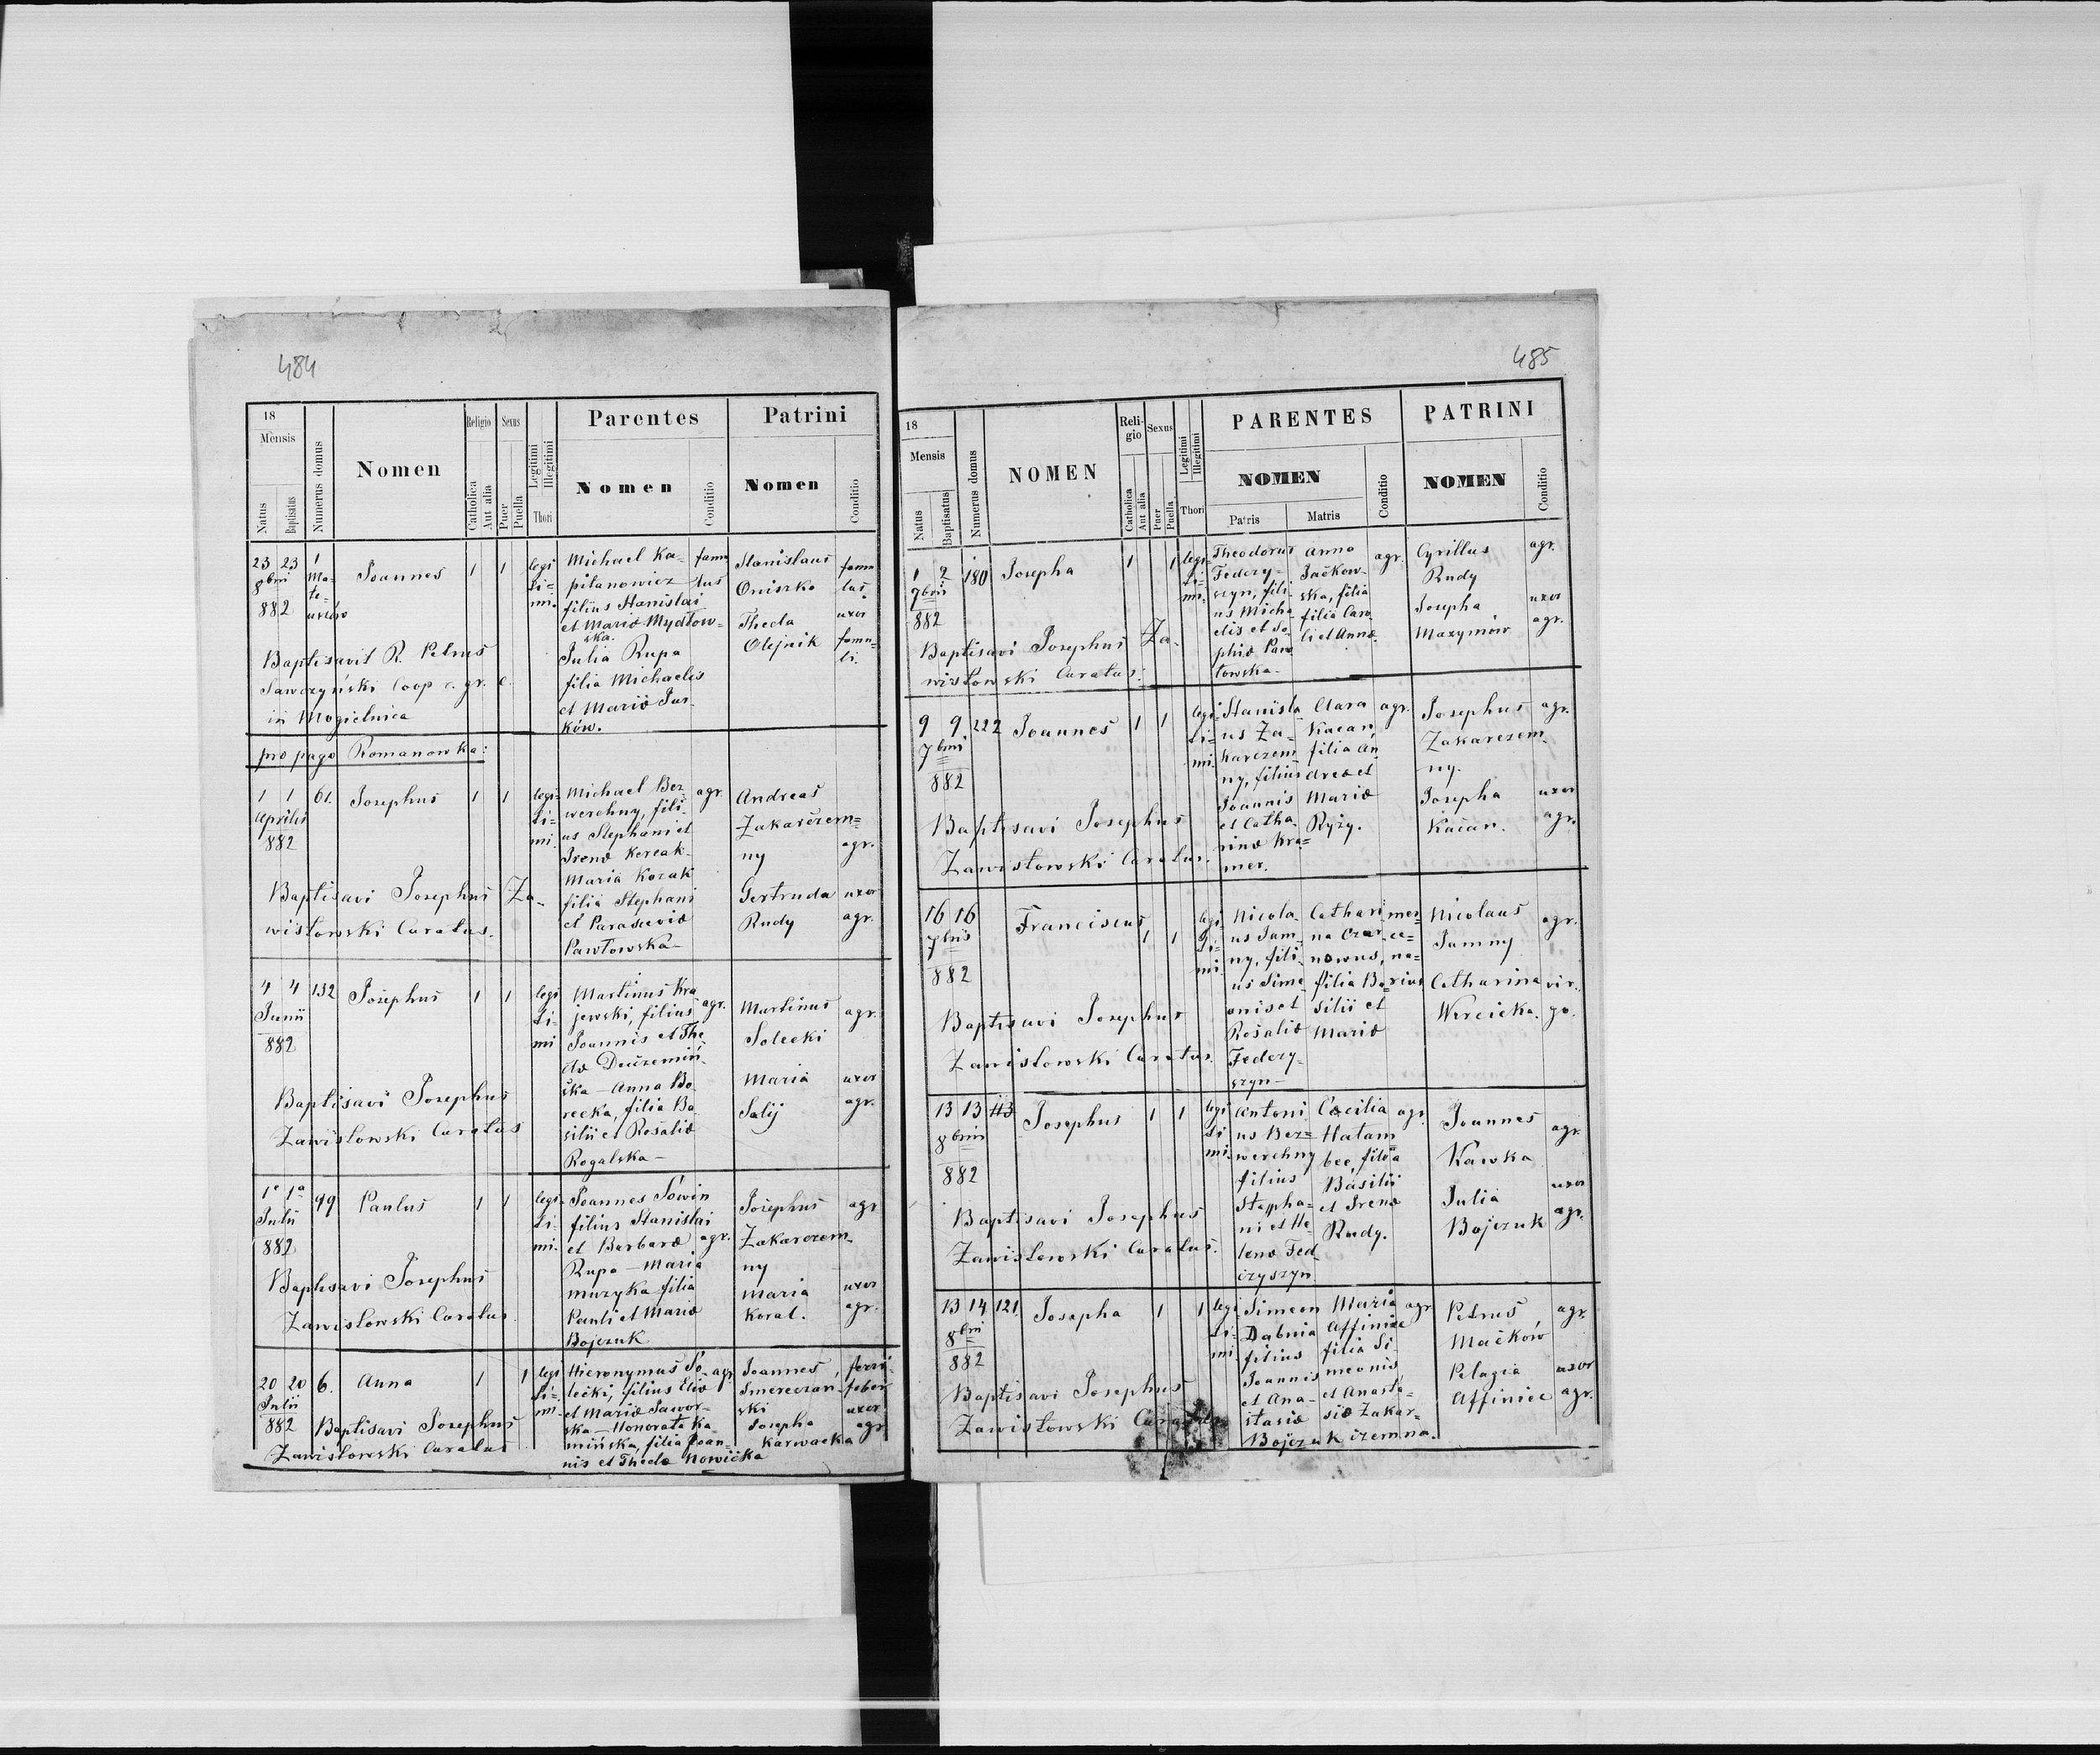 484
18
Mensis
Natus
Baptisatus
Numerus domus
Nomen
Religio
Catholica
Aut alia
Sexus
Puer
Puella
Legitimi
Illegitimi
Thori
Parentes
Nomen
Conditio
Patrini
Nomen
Conditio
23 23
8bri
882
1
Joannes
1
1
legi
ti=
mi.
Michael Ka=
pitanowicz
filius Stanislai
et Mariæ Mydłow=
ska.
Julia Rupa
filia Michaelis
et Mariæ Jus-
ków.
famu
lus
Stanislaus
Oniszko
Thecla
Olejnik
famu
lus
uxor
famu=
li.
Baptisavit R. Petrus
Sawczyński Coop r. gr. c.
in Mogielnica
pro pago Romanowka:
1 1
Aprilis
882
61.
Josephus
1
1
legi=
ti=
mi.
Michael Bez
werchny, fili
us Stephani et
Irenæ
Maria Kozak
filia Stephani
et Parasceviæ
Pawłowska
agr.
Andreas
Zakarczem=
ny
agr.
Gertruda
Rudy
uxor
agr.
Baptisavi Josephus Za-
wistowski Curatus.
4 4
Junii
882
132
Josephus
1
1
legi
ti-
mi
Martinus Kra
jewski, filius
Joannis et The
clæ
ska - Anna Bo
recka, filia Ba
silii et Rosaliæ
Rogalska -
agr.
Martinus
Solecki
agr.
Maria
Salij
uxor
agr.
Baptisavi Josephus
Zawistowski Curatus
Julii
882
99
Paulus
1
1
legi
ti-
mi.
Joannes Sowin
filius Stanislai
et Barbaræ
Rupa - Maria
muzyka filia
Pauli et Mariæ
Bojczuk
agr.
Josephus
Zakarczem-
ny
agr
Maria
Koral.
uxor
agr.
Baptisavi Josephus
Zawistowski Curatus.
20 20
Julii
882
6.
Anna
1
1
legi
ti-
mi.
Hieronymus So-
lecki, filius Eliæ
et Mariæ Sawor-
ska - Honorata Ka
mińska, filia Joan-
nis et Theclæ Nowicka
agr
Joannes
Smereczan-
ski
Josepha
Karwacka
ferri
faber
uxor
agr
Baptisavi Josephus
Zawistowski Curatus
485
18
Mensis
Natus
Baptisatus
Numerus domus
NOMEN
Reli-
gio
Catholica
Aut alia
Sexus
Puer
Puella
Legitimi
Illegitimi
Thori
PARENTES
NOMEN
Patris
Matris
Conditio
PATRINI
NOMEN
Conditio
1 2
7bris
882
180
Josepha
1
1
legi-
ti-
mi.
Theodorus
Federy-
szyn, fili
us Micha
elis et So-
phiæ Paw
łowska -
Anna
Jackow-
ska, filia
Caro
li et Annæ
agr.
Cyrillus
Rudy
agr.
Josepha
Maxymów
uxor
agr.
Baptisavi Josephus Za-
wistowski Curatus:
9 9
7bris
882
222
Joannes
1
1
legi
ti-
mi.
Stanisla
us Za-
karczem
ny, filius
Joannis
et Catha
rinæ Kra=
mer.
Clara
Kacan,
filia An
dreæ et
Mariæ
Ryży.
agr.
Josephus
Zakarczem-
ny.
agr.
Josepha
Kacan.
uxor
agr.
Baptisavi Josephus
Zawistowski Curatus.
16 16
7bris
882
Franciscus
1
1
legi
ti-
mi
Nicola-
us Jam-
ny, fili
us Sime
onis et
Rosaliæ
Federy-
szyn -
Cathari
na Czar
nowus,
filia Ba
silii et
Mariæ
mer=
ce=
na=
rius
Nicolaus
Jamny
agr.
Catharina
Wercicka.
vir-
go.
Baptisavi Josephus
Zawistowski Curatus.
13 13
8bris
882
113
Josephus
1
1
legi
ti
mi.
Antoni
us Bez=
werchny
filius
Stepha=
ni et He
lenæ Fed
czyszyn
Cæcilia
Hałam
bec, filia
Basilii
et Irenæ
Rudy.
agr
Joannes
Kawka
agr.
Julia
Bojczuk
uxor
agr.
Baptisavi Josephus
Zawistowski Curatus.
13 14
8bri
882
121
Josepha
1
1
legi
ti-
mi
Simeon
Dubnia
filius
Joannis
et Ana-
stasiæ
Bojczuk
Maria
Affinice
filia Si-
meonis
et Anasta-
siæ Zakar=
czemna.
agr
Petrus
Maćków
agr.
Pelagia
Affinice
uxor
agr.
Baptisavi Josephus
Zawistowski Curatus